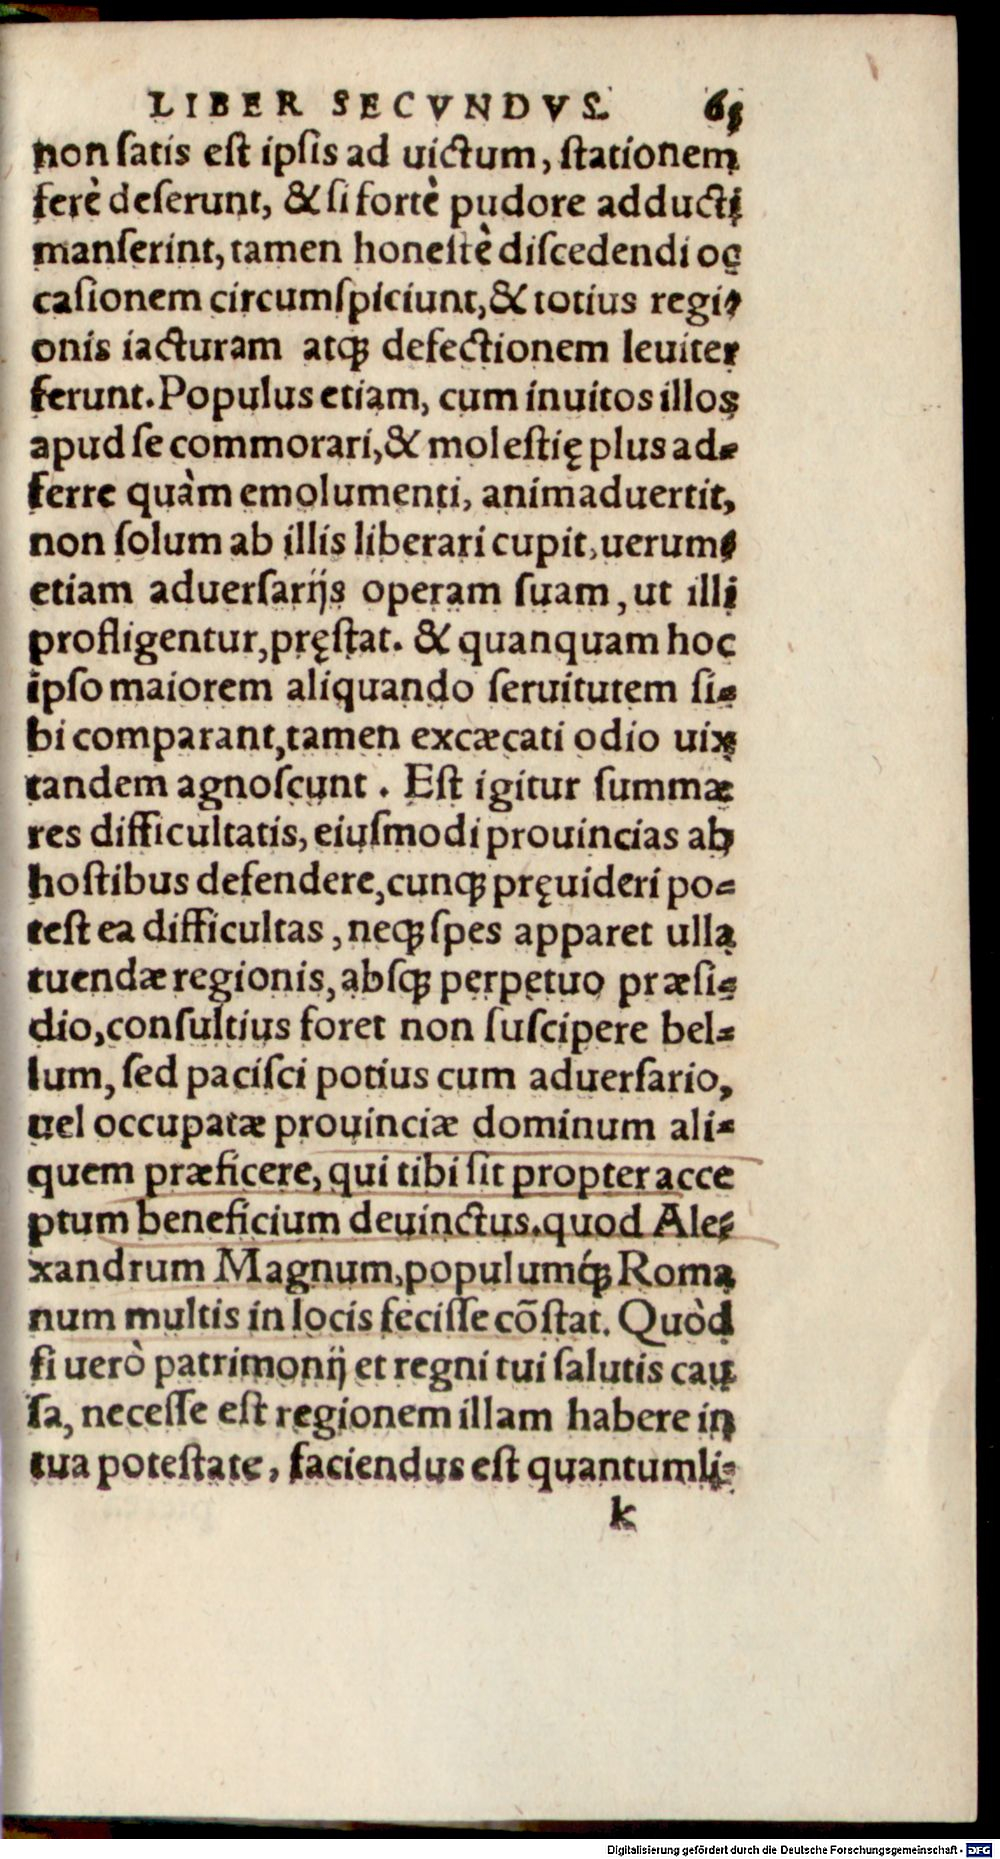 LIBER SECVNDVS. 65
non ſatis eſt ipſis ad uictum, ſtationem
ferè deſerunt, & ſi fortè pudore adducti
manſerint, tamen honeſtè diſcedendi oc
caſionem circumſpiciunt, & totius regi-
onis iacturam atq́ꝫ defectionem leuiter
ferunt. Populus etiam, cum inuitos illos
apud ſe commorari, & moleſtię plus ad-
ferre quàm emolumenti, animaduertit,
non ſolum ab illis liberari cupit, uerum-
etiam aduerſarijs operam ſuam, ut illi
profligentur, pręſtat. & quanquam hoc
ipſo maiorem aliquando ſeruitutem ſi-
bi comparant, tamen excæcati odio uix
tandem agnoſcunt. Eſt igitur ſummæ
res difficultatis, eiuſmodi prouincias ab
hoſtibus defendere, cunqꝫ pręuideri po-
teſt ea difficultas, neqꝫ ſpes apparet ulla
tuendæ regionis, abſqꝫ perpetuo præſi-
dio, conſultius foret non ſuſcipere bel-
lum, ſed paciſci potius cum aduerſario,
uel occupatæ prouinciæ dominum ali-
quem præficere, qui tibi ſit propter acce
ptum beneficium deuinctus. quod Ale-
xandrum Magnum, populumq́ꝫ Roma
num multis in locis feciſſe cōſtat. Quòd
ſi uerò patrimonij et regni tui ſalutis cau
ſa, neceſſe eſt regionem illam habere in
tua poteſtate, faciendus eſt quantumli-
k
Digitalisierung gefördert durch die Deutsche Forschungsgemeinschaft - DFG